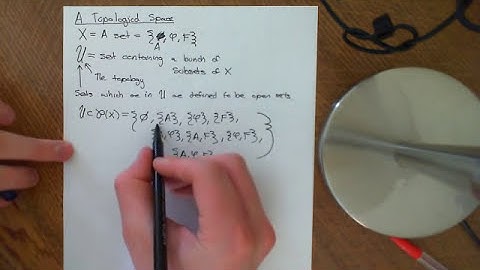 A Topological Space
X = A set = {A, φ, F}
𝒰 = set containing a bunch of
subsets of X
The topology
Sets which are in 𝒰 are defined to be open sets
𝒰 ⊂ ℘(X) = { ∅, {A}, {φ}, {F},
φ}, {A, F}, {φ, F},
{A, φ, F
}